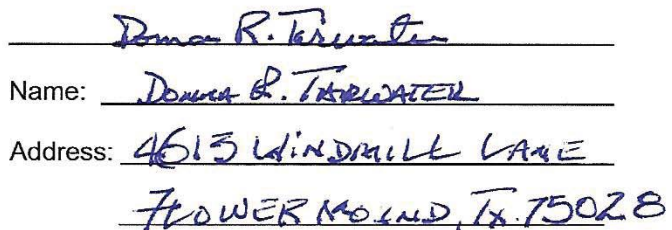 Donna R. Tarwater
Name: Donna R. TARWATER
Address: 4613 WINDMILL LANE
FLOWER MOUND, Tx. 75028